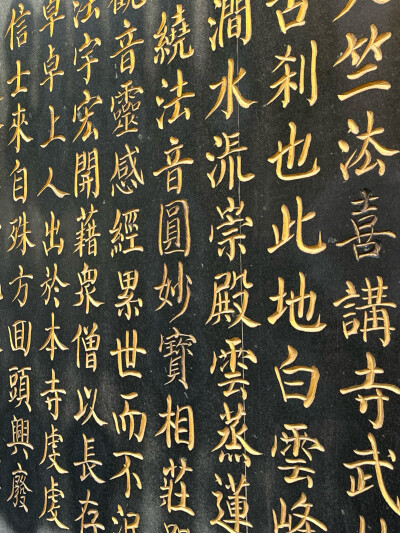 竺法喜講寺武
古刹也此地白雲峰
澗水流崇殿雲蒸蓮
繞法音圓妙寶相莊
觀音靈感經累世而不
法宇宏開藉衆僧以長存
卓卓上人出於本寺虔虔
信士來自殊方囬頭興廢